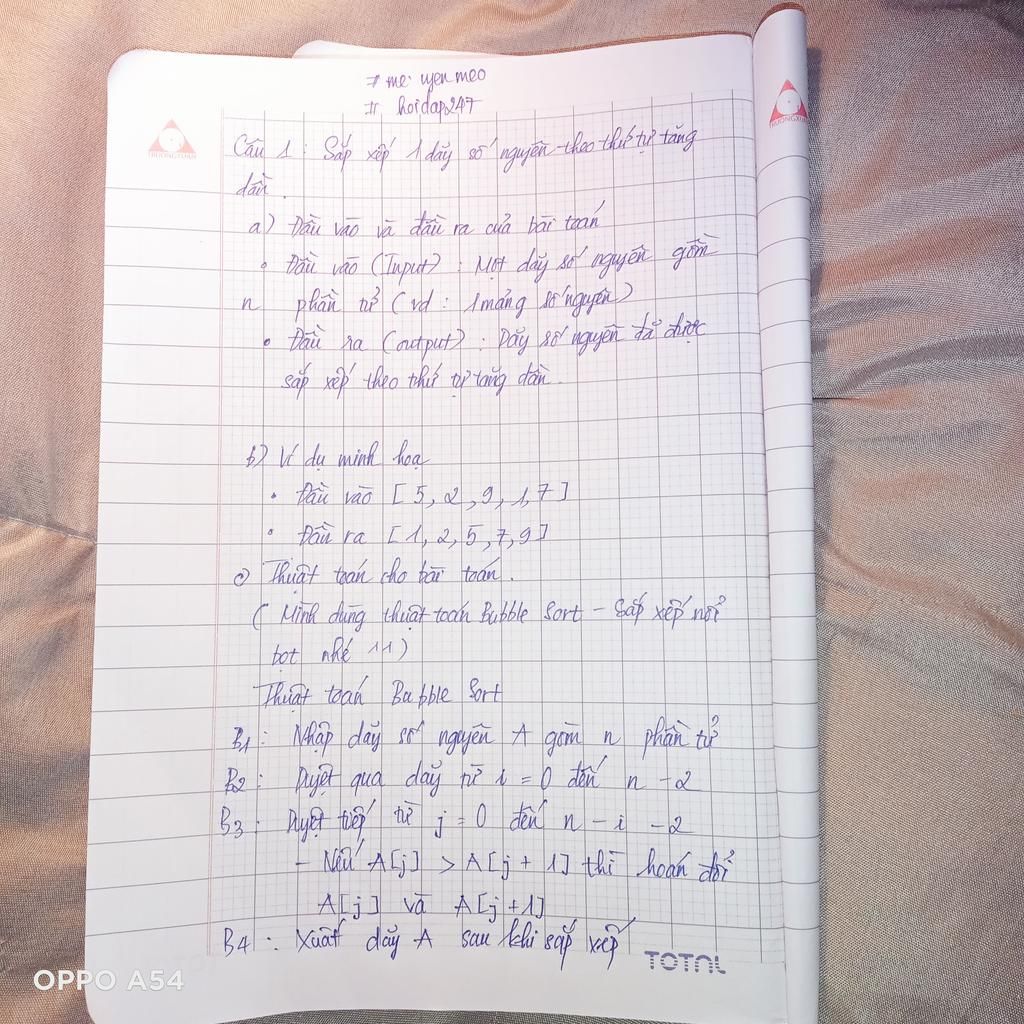 # me uyen meo
# hoidap247
TRUONGXUAN
TRUONGXUAN
Câu 1 : Sắp xếp 1 dãy số nguyên theo thứ tự tăng
dần .
a) Đầu vào và đầu ra của bài toán
• Đầu vào (Input) : Một dãy số nguyên gồm
n phần tử ( vd : 1 mảng số nguyên )
• Đầu ra (output) : Dãy số nguyên đã được
sắp xếp theo thứ tự tăng dần .
b) Ví dụ minh hoạ
• Đầu vào [ 5 , 2 , 9 , 1 , 7 ]
• Đầu ra [ 1 , 2 , 5 , 7 , 9 ]
c) Thuật toán cho bài toán .
( Mình dùng thuật toán Bubble Sort - Sắp xếp nổi
bọt nhé 11 )
Thuật toán Bubble Sort
B1 : Nhập dãy số nguyên A gồm n phần tử
B2 : Duyệt qua dãy từ i = 0 đến n - 2
B3 : Duyệt tiếp từ j = 0 đến n - i - 2
- Nếu A[j] > A[j + 1] thì hoán đổi
A[j] và A[j+1]
B4 : Xuất dãy A sau khi sắp xếp
TOTAL
OPPO A54